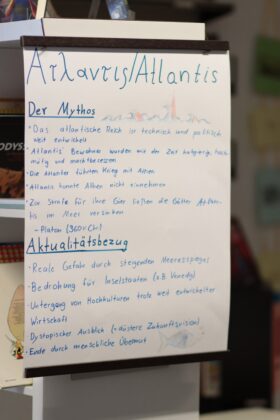 Ατλαντις/Atlantis
Der Mythos
· Das atlantische Reich ist technisch und politisch
weit entwickelt
· Atlantis' Bewohner wurden mit der Zeit habgierig, hoch-
mütig und machtbesessen
· Die Atlanter führten Krieg mit Athen
· Atlantis konnte Athen nicht einnehmen
· Zur Strafe für ihre Gier ließen die Götter Atlan-
tis im Meer versinken
- Platon (360 v. Chr.)
Aktualitätsbezug
· Reale Gefahr durch steigenden Meeresspiegel
· Bedrohung für Inselstaaten (z.B. Venedig)
· Untergang von Hochkulturen trotz weit entwickelter
Wirtschaft
Dystopischer Ausblick (= düstere Zukunftsvision)
· Ende durch menschliche Übermut
ODYSS